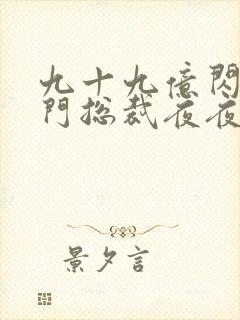 九十九億閃
門撩裁夜夜
景夕言